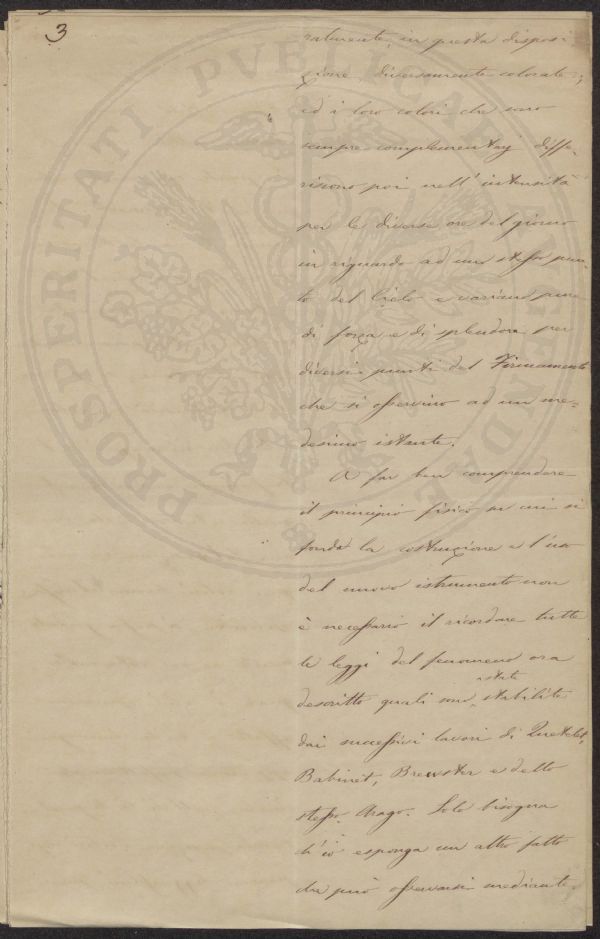 3
ralmente, in questa disposi
zione, diversamente colorate;
ed i loro colori che sono
sempre complementarj diffe-
riscono poi nell'intensità
per le diverse ore del giorno
in riguardo ad uno stesso pun-
to del Cielo e variano pure
di forza e di splendore per
diversi punti del Firmamento
che si osservino ad un me-
desimo istante.
A far ben comprendere
il principio fisico su cui si
fonda la costruzione e l'uso
del nuovo istrumento non
è necessario il ricordare tutte
le leggi del fenomeno ora
descritto quali sono state stabilite
dai successivi lavori di Quetelet,
Babinet, Brewster e dello
stesso Arago. Solo bisogna
ch'io esponga un altro fatto
che può osservarsi mediante
PROSPERITATI PVBLICAE AVGENDAE